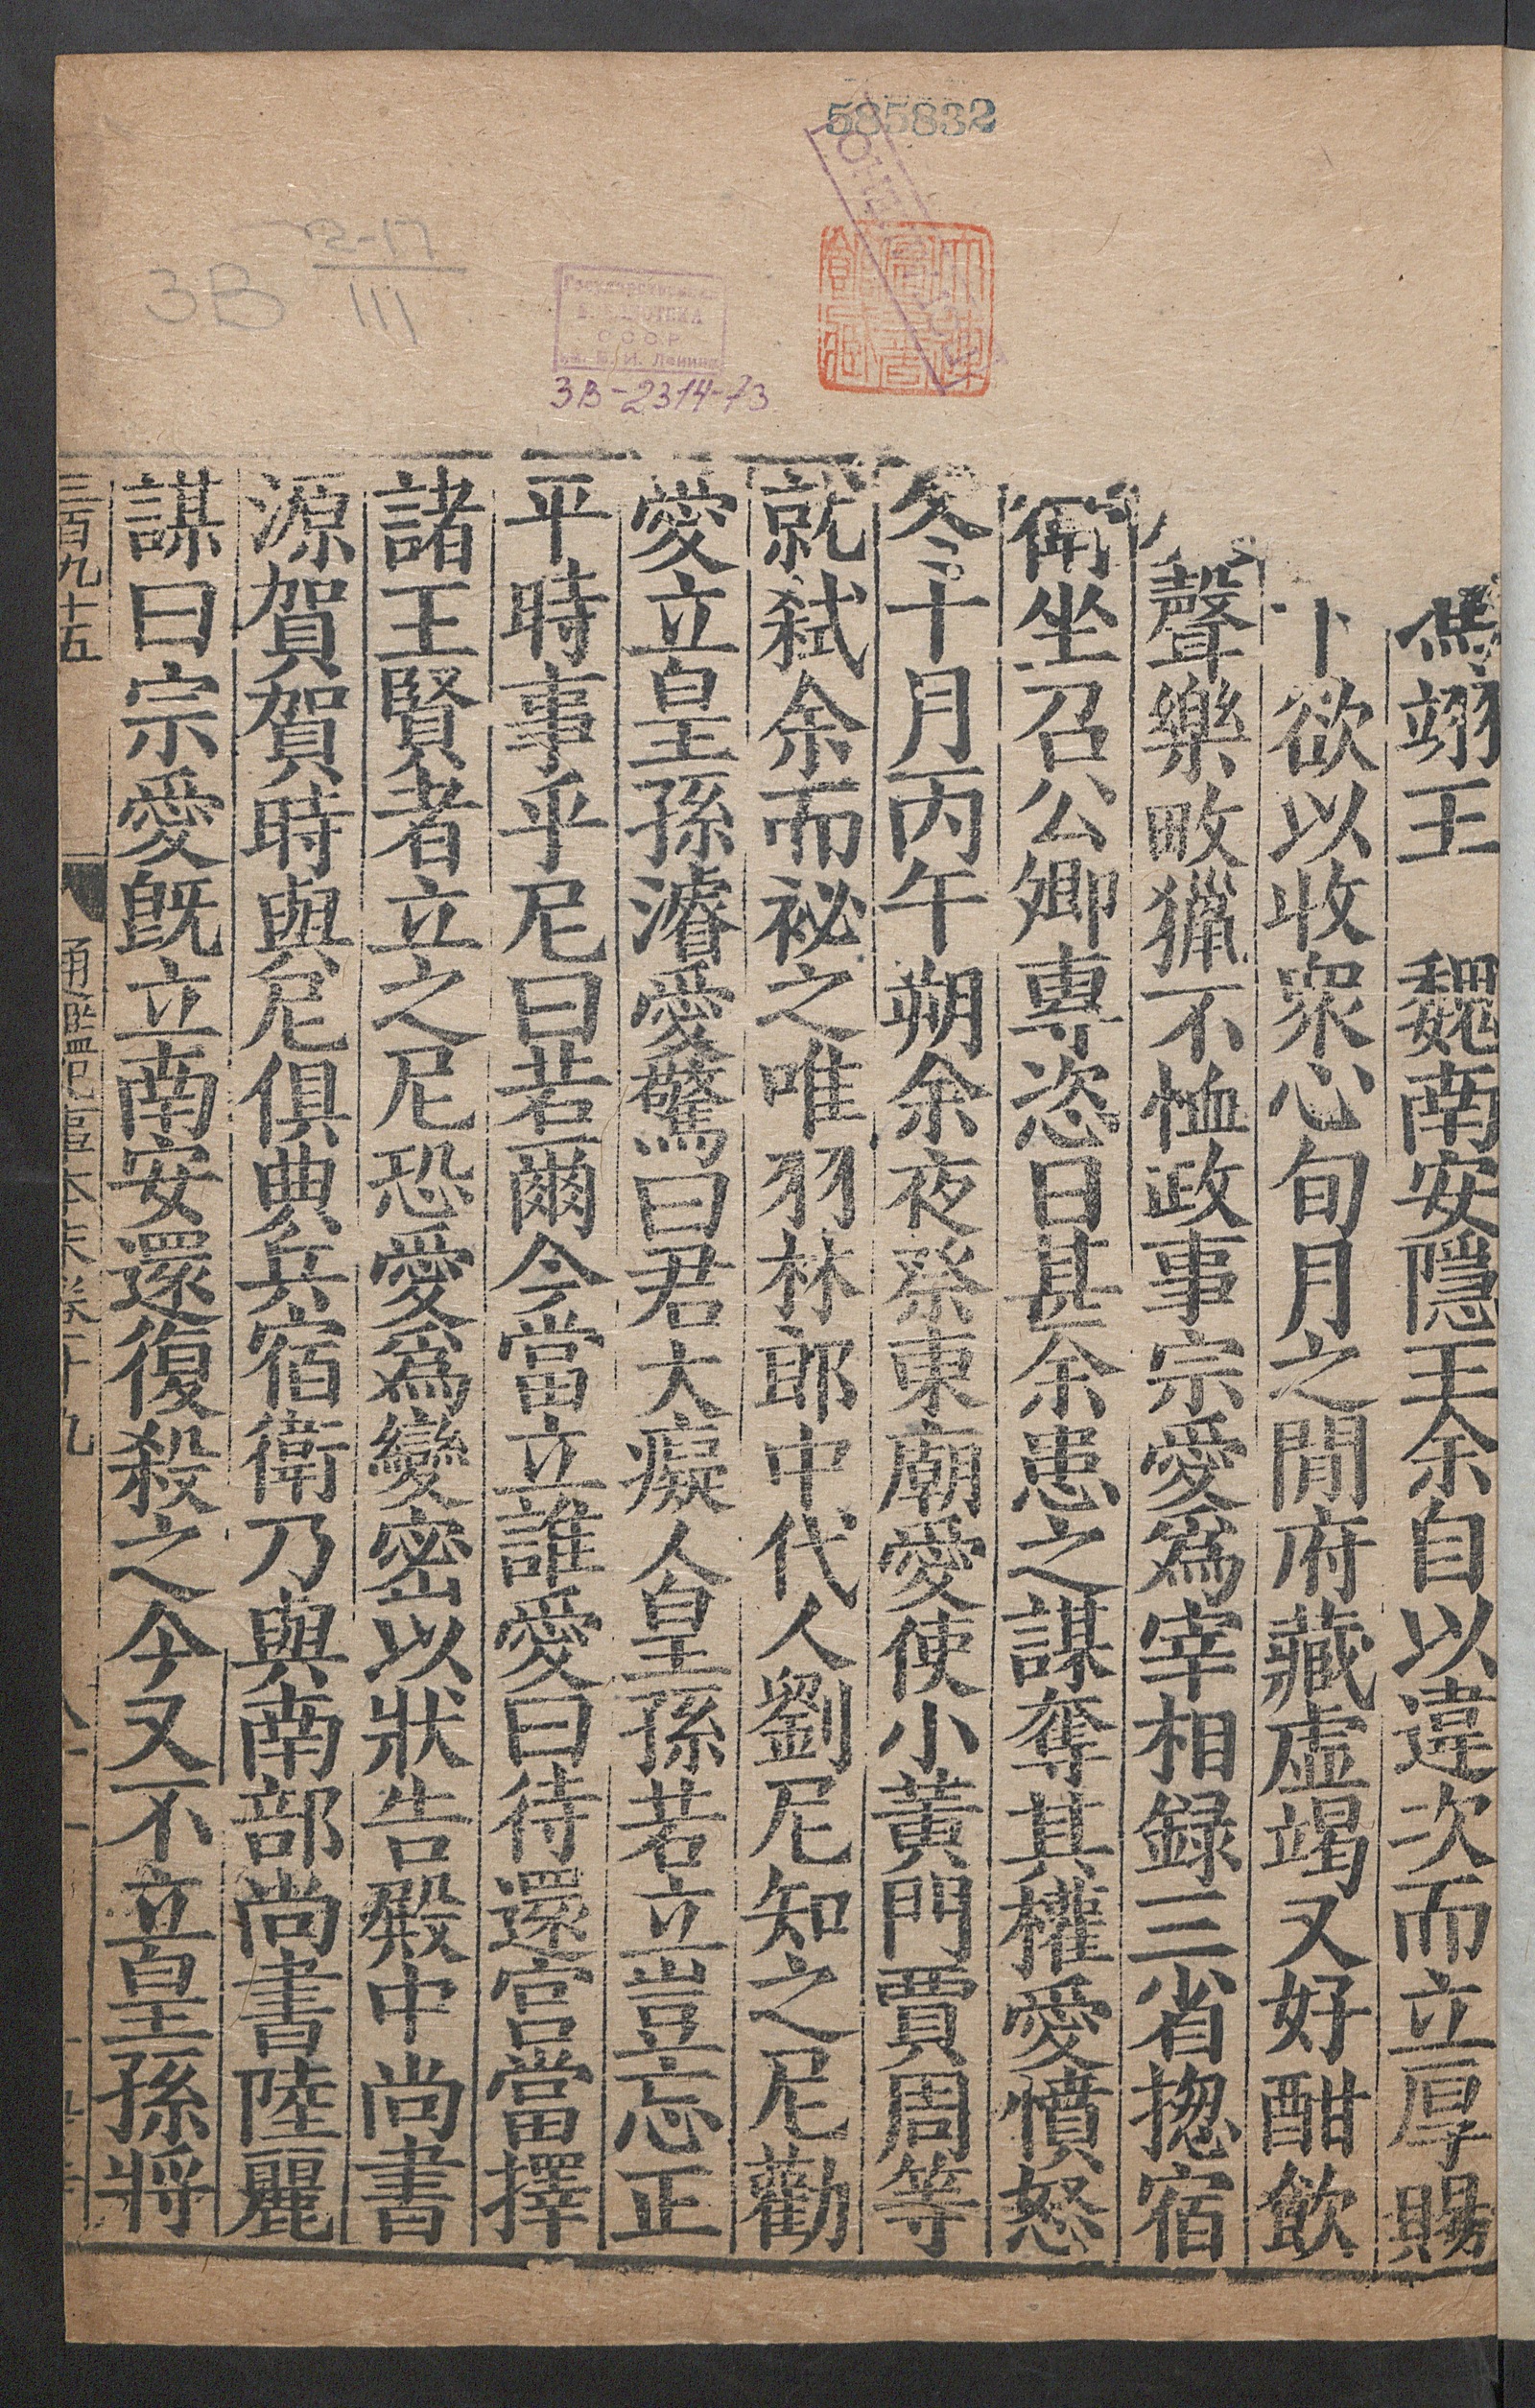 585832
2-17
3B III
Государственная
БИБЛИОТЕКА
СССР
им. В. И. Ленина
3B-2314-73
馮翊王　魏南安隱王余自以違次而立厚賜
下欲以收衆心旬月之間府藏虛竭又好酣飲
聲樂畋獵不恤政事宗愛爲宰相録三省揔宿
衛坐召公卿專恣日甚余患之謀奪其權愛憤怒
冬十月丙午朔余夜祭東廟愛使小黃門賈周等
就弑余而祕之唯羽林郎中代人劉尼知之尼勸
愛立皇孫濬愛驚曰君大癡人皇孫若立豈忘正
平時事乎尼曰若爾今當立誰愛曰待還宮當擇
諸王賢者立之尼恐愛爲變密以狀告殿中尚書
源賀賀時與尼俱典兵宿衛乃與南部尚書陸麗
謀曰宗愛旣立南安還復殺之今又不立皇孫將
三百九十五
通鑑紀事本末卷十九